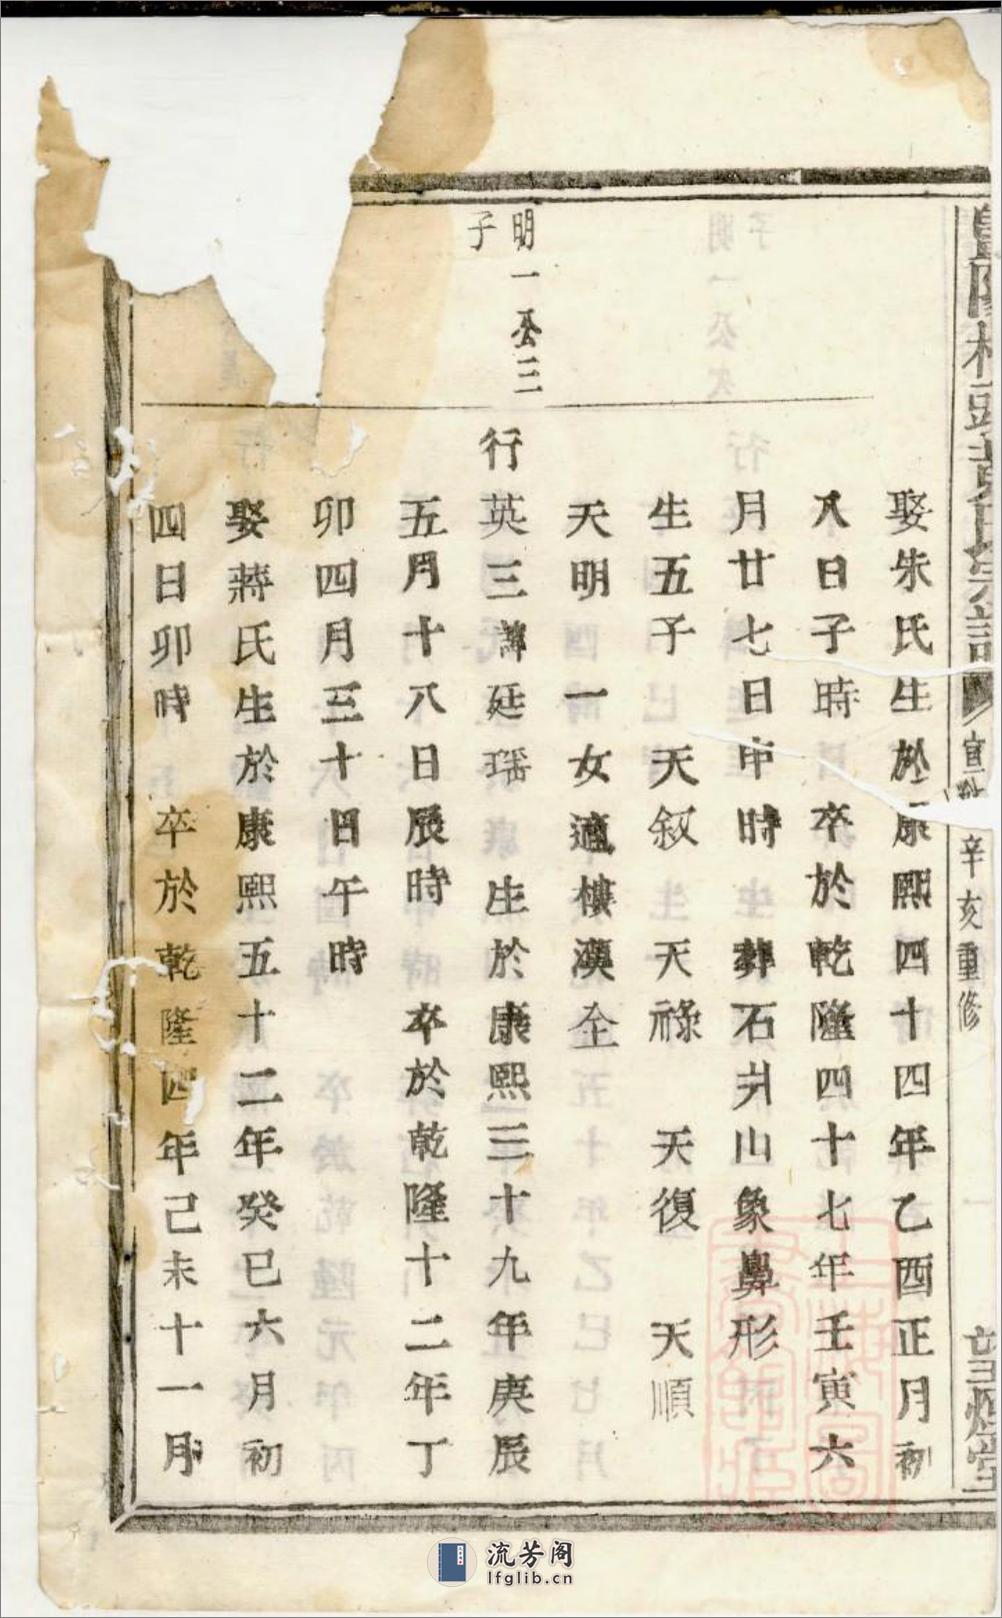 娶朱氏生於康熙四十四年乙酉正月初
八日子時 卒於乾隆四十七年壬寅六
月廿七日申時 葬石井山象鼻形
生五子 天叙 天祿 天復 天順
天明 一女適樓漢全
明一公三
子
行英三諱廷瑶 生於康熙三十九年庚辰
五月十八日辰時 卒於乾隆十二年丁
卯四月三十日午時
娶蔣氏生於康熙五十二年癸巳六月初
四日卯時 卒於乾隆四年己未十一月
宗譜
辛亥重修
望煙堂
流芳阁
lfglib.cn